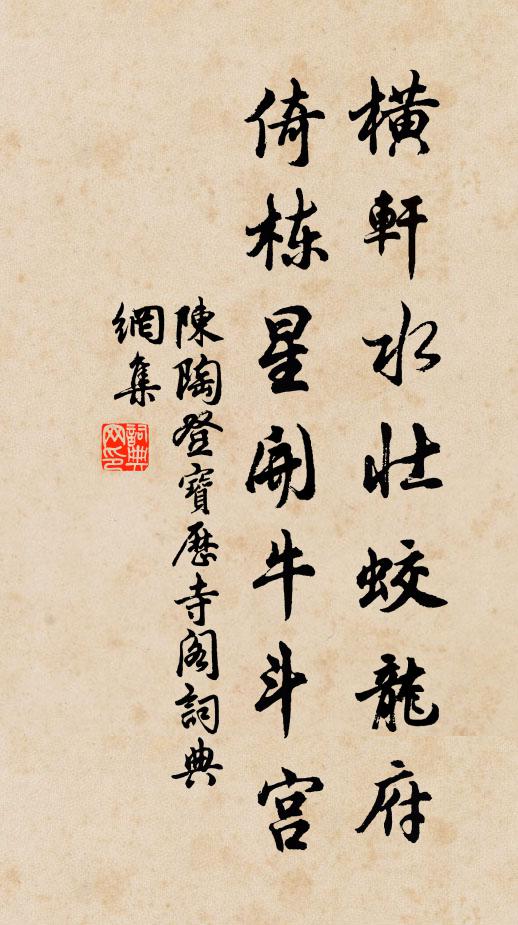 橫軒水壯蛟龍府
倚棟星開牛斗宮
陳陶登寶歷寺閣詞典
網集
詞典網印